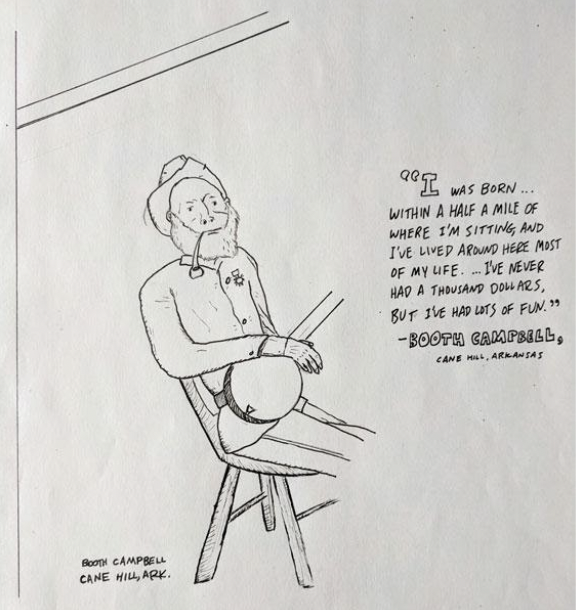 "I WAS BORN...
WITHIN A HALF A MILE OF
WHERE I'M SITTING, AND
I'VE LIVED AROUND HERE MOST
OF MY LIFE. ...I'VE NEVER
HAD A THOUSAND DOLLARS,
BUT I'VE HAD LOTS OF FUN."
-BOOTH CAMPBELL,
CANE HILL, ARKANSAS
BOOTH CAMPBELL
CANE HILL, ARK.